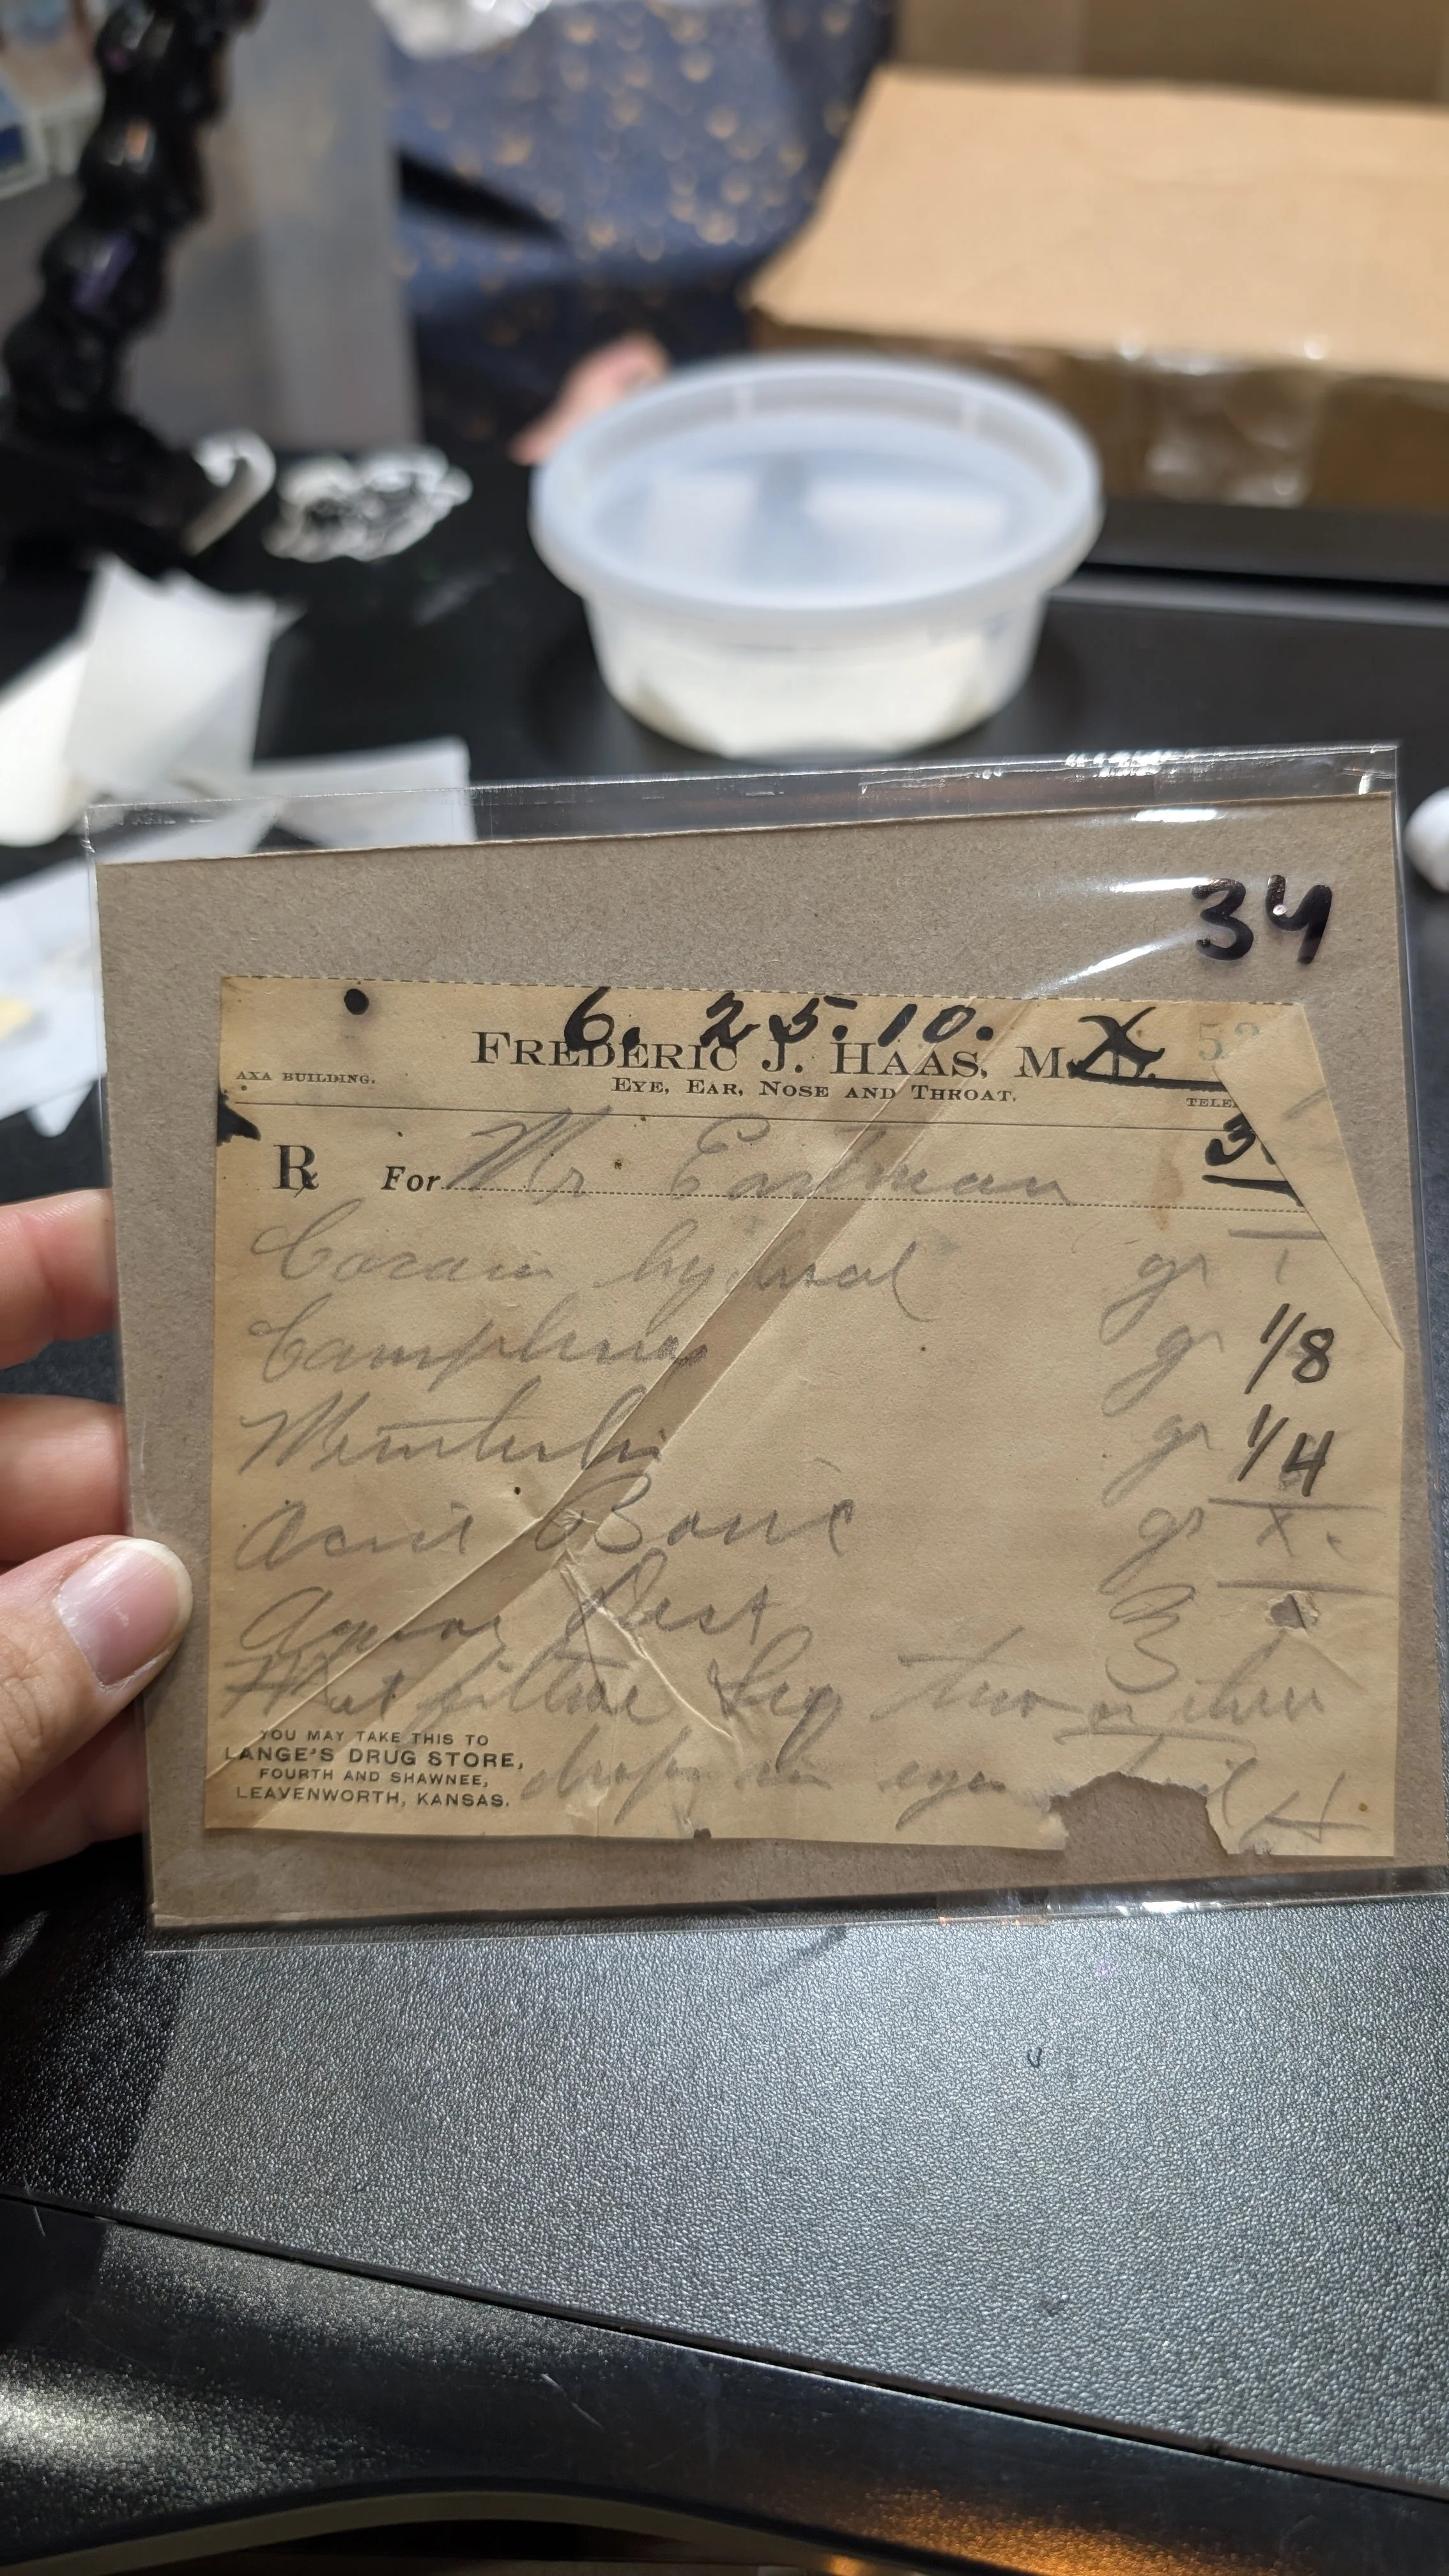 34
6. 25. 10. X
FREDERIC J. HAAS, M.D.
AXA BUILDING.
EYE, EAR, NOSE AND THROAT.
TELE
3
℞ For Mr Eastman
Cocain hydrochl gr T
Camphor gr 1/8
Menthol gr 1/4
Acid Boric gr X
Aquae Dest ʒ
M et filtrae Sig two or three
drops in eyes
YOU MAY TAKE THIS TO
LANGE'S DRUG STORE,
FOURTH AND SHAWNEE,
LEAVENWORTH, KANSAS.
H